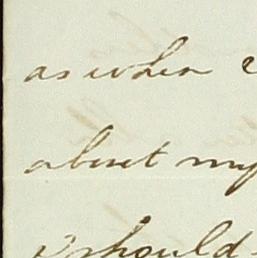 as when
about my
I should